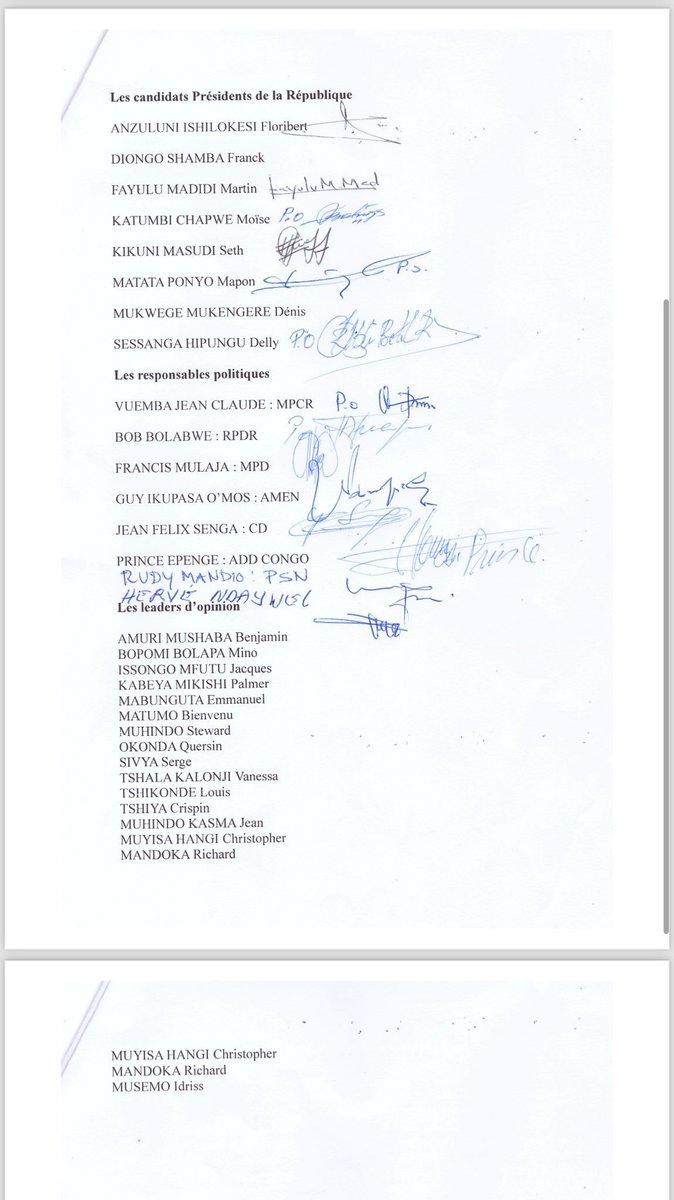 Les candidats Présidents de la République
ANZULUNI ISHILOKESI Floribert
DIONGO SHAMBA Franck
FAYULU MADIDI Martin Fayulu M Mad
KATUMBI CHAPWE Moïse P.O
KIKUNI MASUDI Seth
MATATA PONYO Mapon P.S.
MUKWEGE MUKENGERE Dénis
SESSANGA HIPUNGU Delly P.O
Les responsables politiques
VUEMBA JEAN CLAUDE : MPCR P.o
BOB BOLABWE : RPDR
FRANCIS MULAJA : MPD
GUY IKUPASA O'MOS : AMEN
JEAN FELIX SENGA : CD
PRINCE EPENGE : ADD CONGO Prince
RUDY MANDIO : PSN
HERVE NDAYWEL
Les leaders d'opinion
AMURI MUSHABA Benjamin
BOPOMI BOLAPA Mino
ISSONGO MFUTU Jacques
KABEYA MIKISHI Palmer
MABUNGUTA Emmanuel
MATUMO Bienvenu
MUHINDO Steward
OKONDA Quersin
SIVYA Serge
TSHALA KALONJI Vanessa
TSHIKONDE Louis
TSHIYA Crispin
MUHINDO KASMA Jean
MUYISA HANGI Christopher
MANDOKA Richard
MUYISA HANGI Christopher
MANDOKA Richard
MUSEMO Idriss